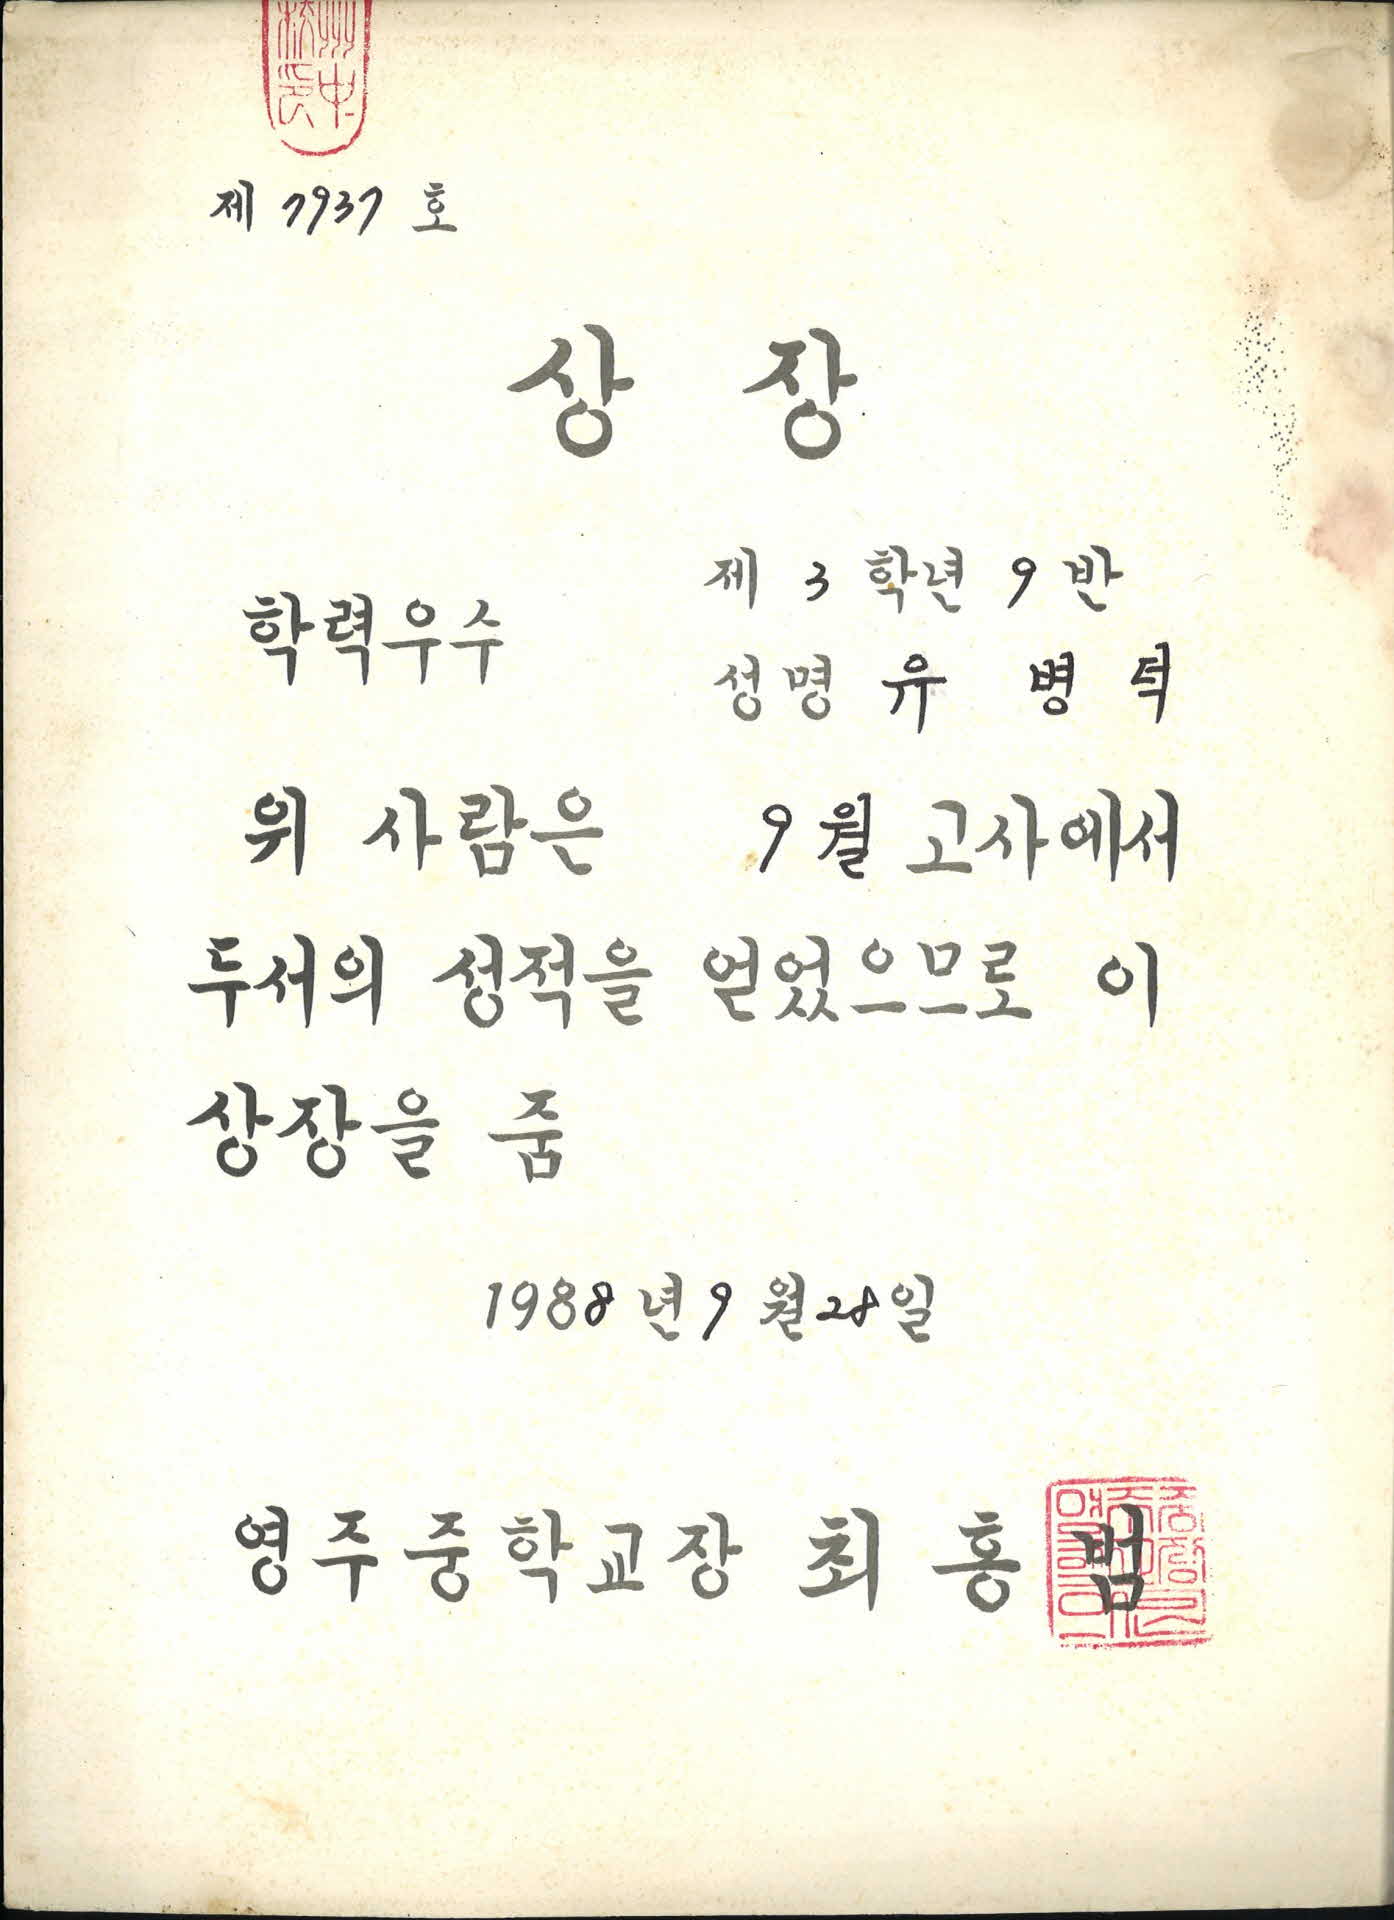 제 7937 호
상 장
학력우수
제 3 학년 9 반
성명 유 병 덕
위 사람은 9월 고사에서
두서의 성적을 얻었으므로 이
상장을 줌
1988년 9월 28일
영주중학교장 최홍범